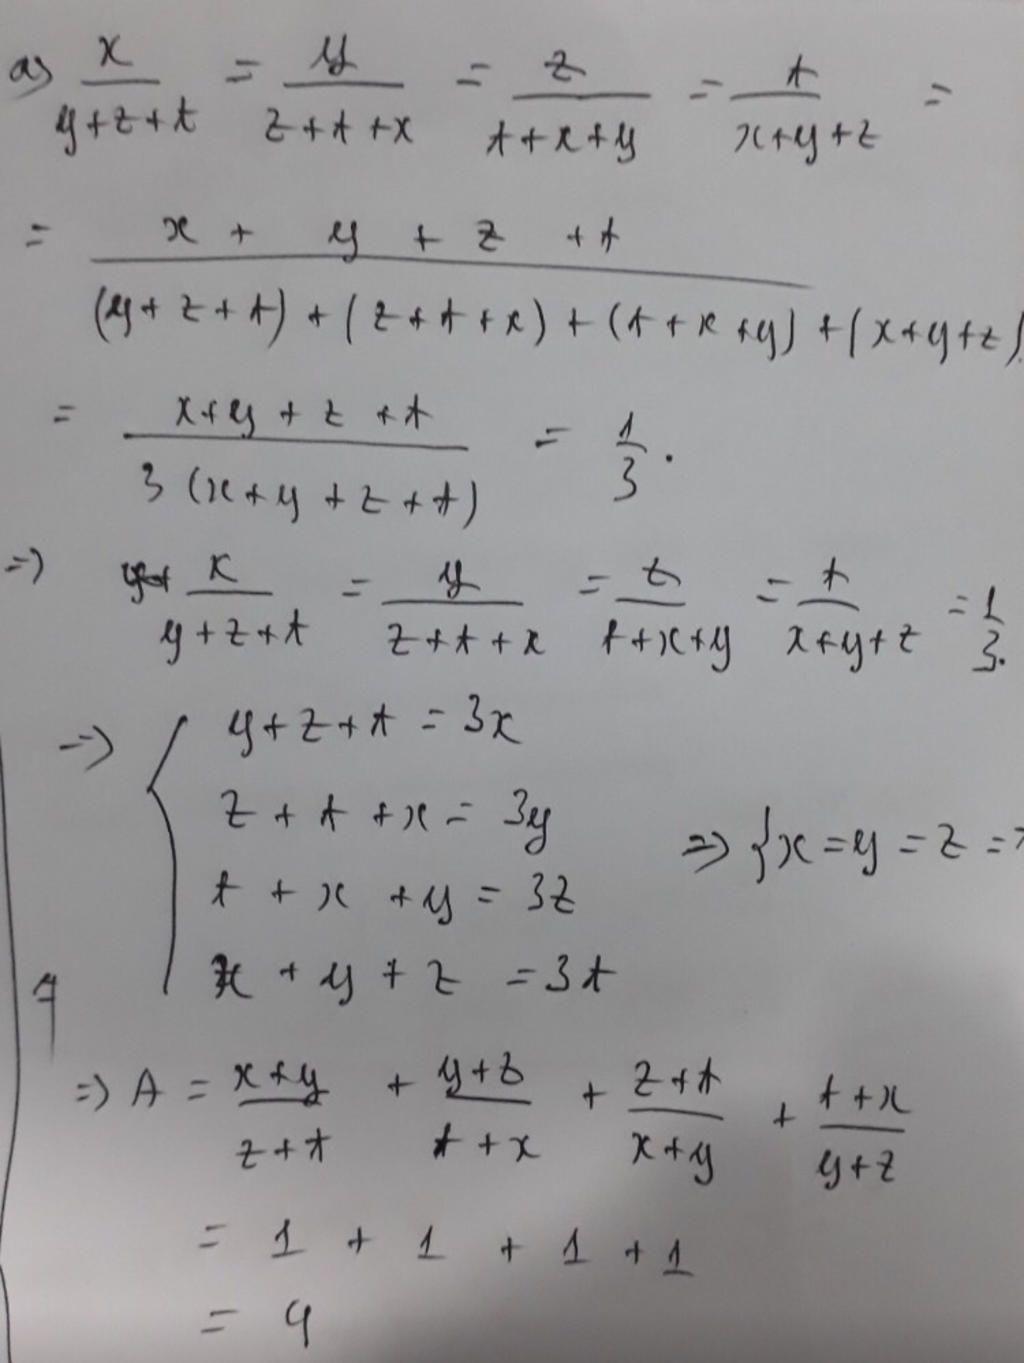 a) x/(y+z+t) = y/(z+t+x) = z/(t+x+y) = t/(x+y+z) =
= (x + y + z + t)/((y+z+t) + (z+t+x) + (t+x+y) + (x+y+z))
= (x+y+z+t)/(3(x+y+z+t)) = 1/3.
=> x/(y+z+t) = y/(z+t+x) = z/(t+x+y) = t/(x+y+z) = 1/3.
=> { y+z+t = 3x
z+t+x = 3y => { x=y=z=
t+x+y = 3z
x+y+z = 3t
=> A = (x+y)/(z+t) + (y+z)/(t+x) + (z+t)/(x+y) + (t+x)/(y+z)
= 1 + 1 + 1 + 1
= 4